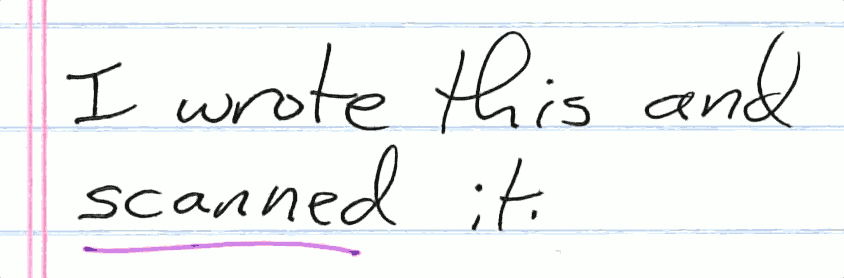 I wrote this and
scanned it.